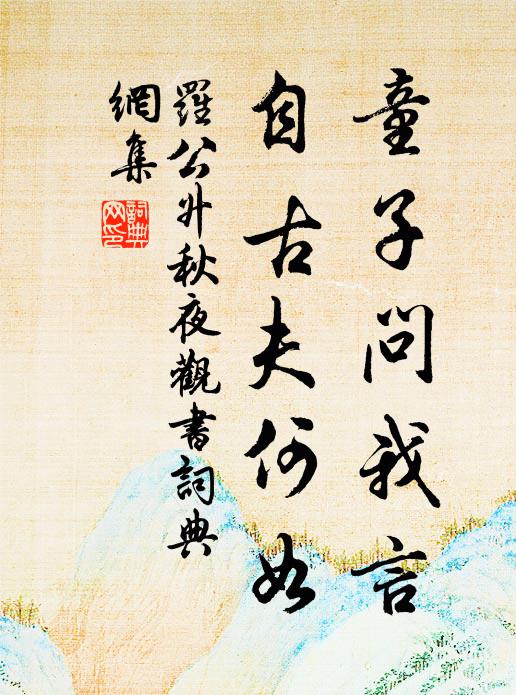 童子問我言
自古夫何如
羅公升秋夜觀書詞典
網集
詞典
网印